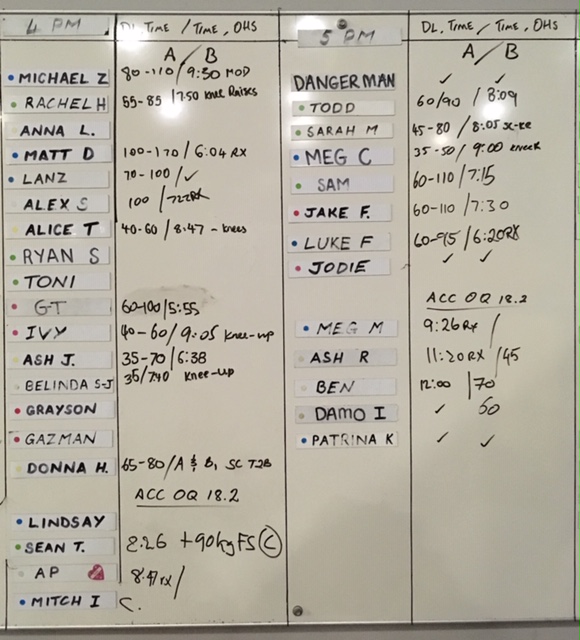 4 PM
DL, TIME / TIME, OHS
A / B
MICHAEL Z 80-110 / 9:50 MOD
RACHEL H 55-85 / 7:50 knee Raises
ANNA L.
MATT D 100-170 / 6:04 RX
LANZ 70-100 / ✓
ALEX S 100 /
ALICE T 40-60 / 8:47 - knees
RYAN S
TONI
GT 60-100 / 5:55
IVY 40-60 / 9:05 knee-up
ASH J. 35-70 / 6:38
BELINDA S-J 35 / 7:40 knee-up
GRAYSON
GAZMAN
DONNA H. 65-80 / A & B, SC
ACC OQ 18.2
LINDSAY
SEAN T. 2:26 + 90kg FS C
AP 8:47 rx /
MITCH I C.
5 PM
DL, TIME / TIME, OHS
A / B
DANGERMAN ✓ ✓
TODD 60/90 / 8:09
SARAH M 45-80 / 8:05
MEG C 35-50 / 9:00
SAM 60-110 / 7:15
JAKE F. 60-110 / 7:30
LUKE F 60-95 / 6:20 RX
JODIE ✓ ✓
ACC OQ 18.2
MEG M 9:26 Rx /
ASH R 11:20 RX / 45
BEN 12:00 / 70
DAMO I ✓ 60
PATRINA K ✓ ✓